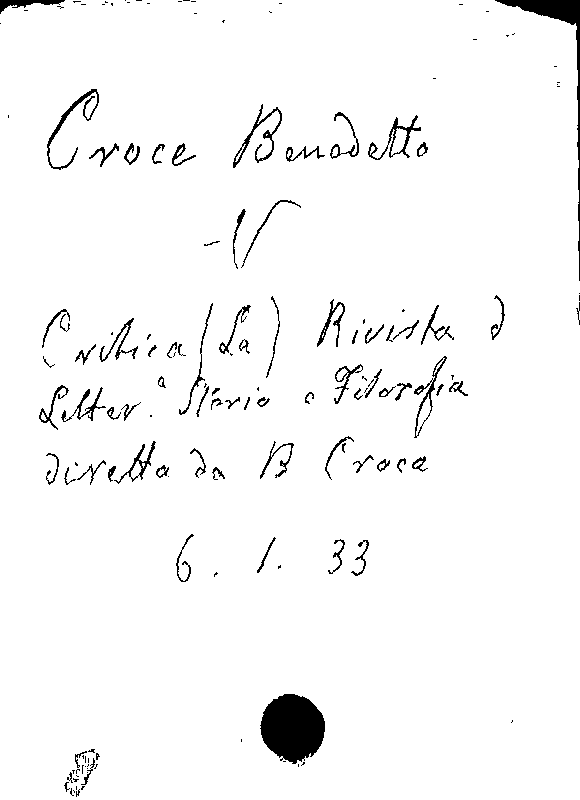 Croce Benedetto
- V
Critica (La) Rivista d
Letter.a Storia e Filosofia
diretta da B Croce
6. 1. 33